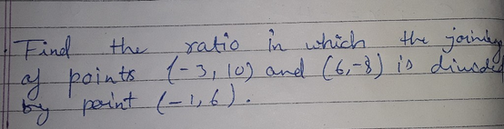 Find the ratio in which the joining
of points (-3, 10) and (6, -8) is divided
by point (-1, 6).